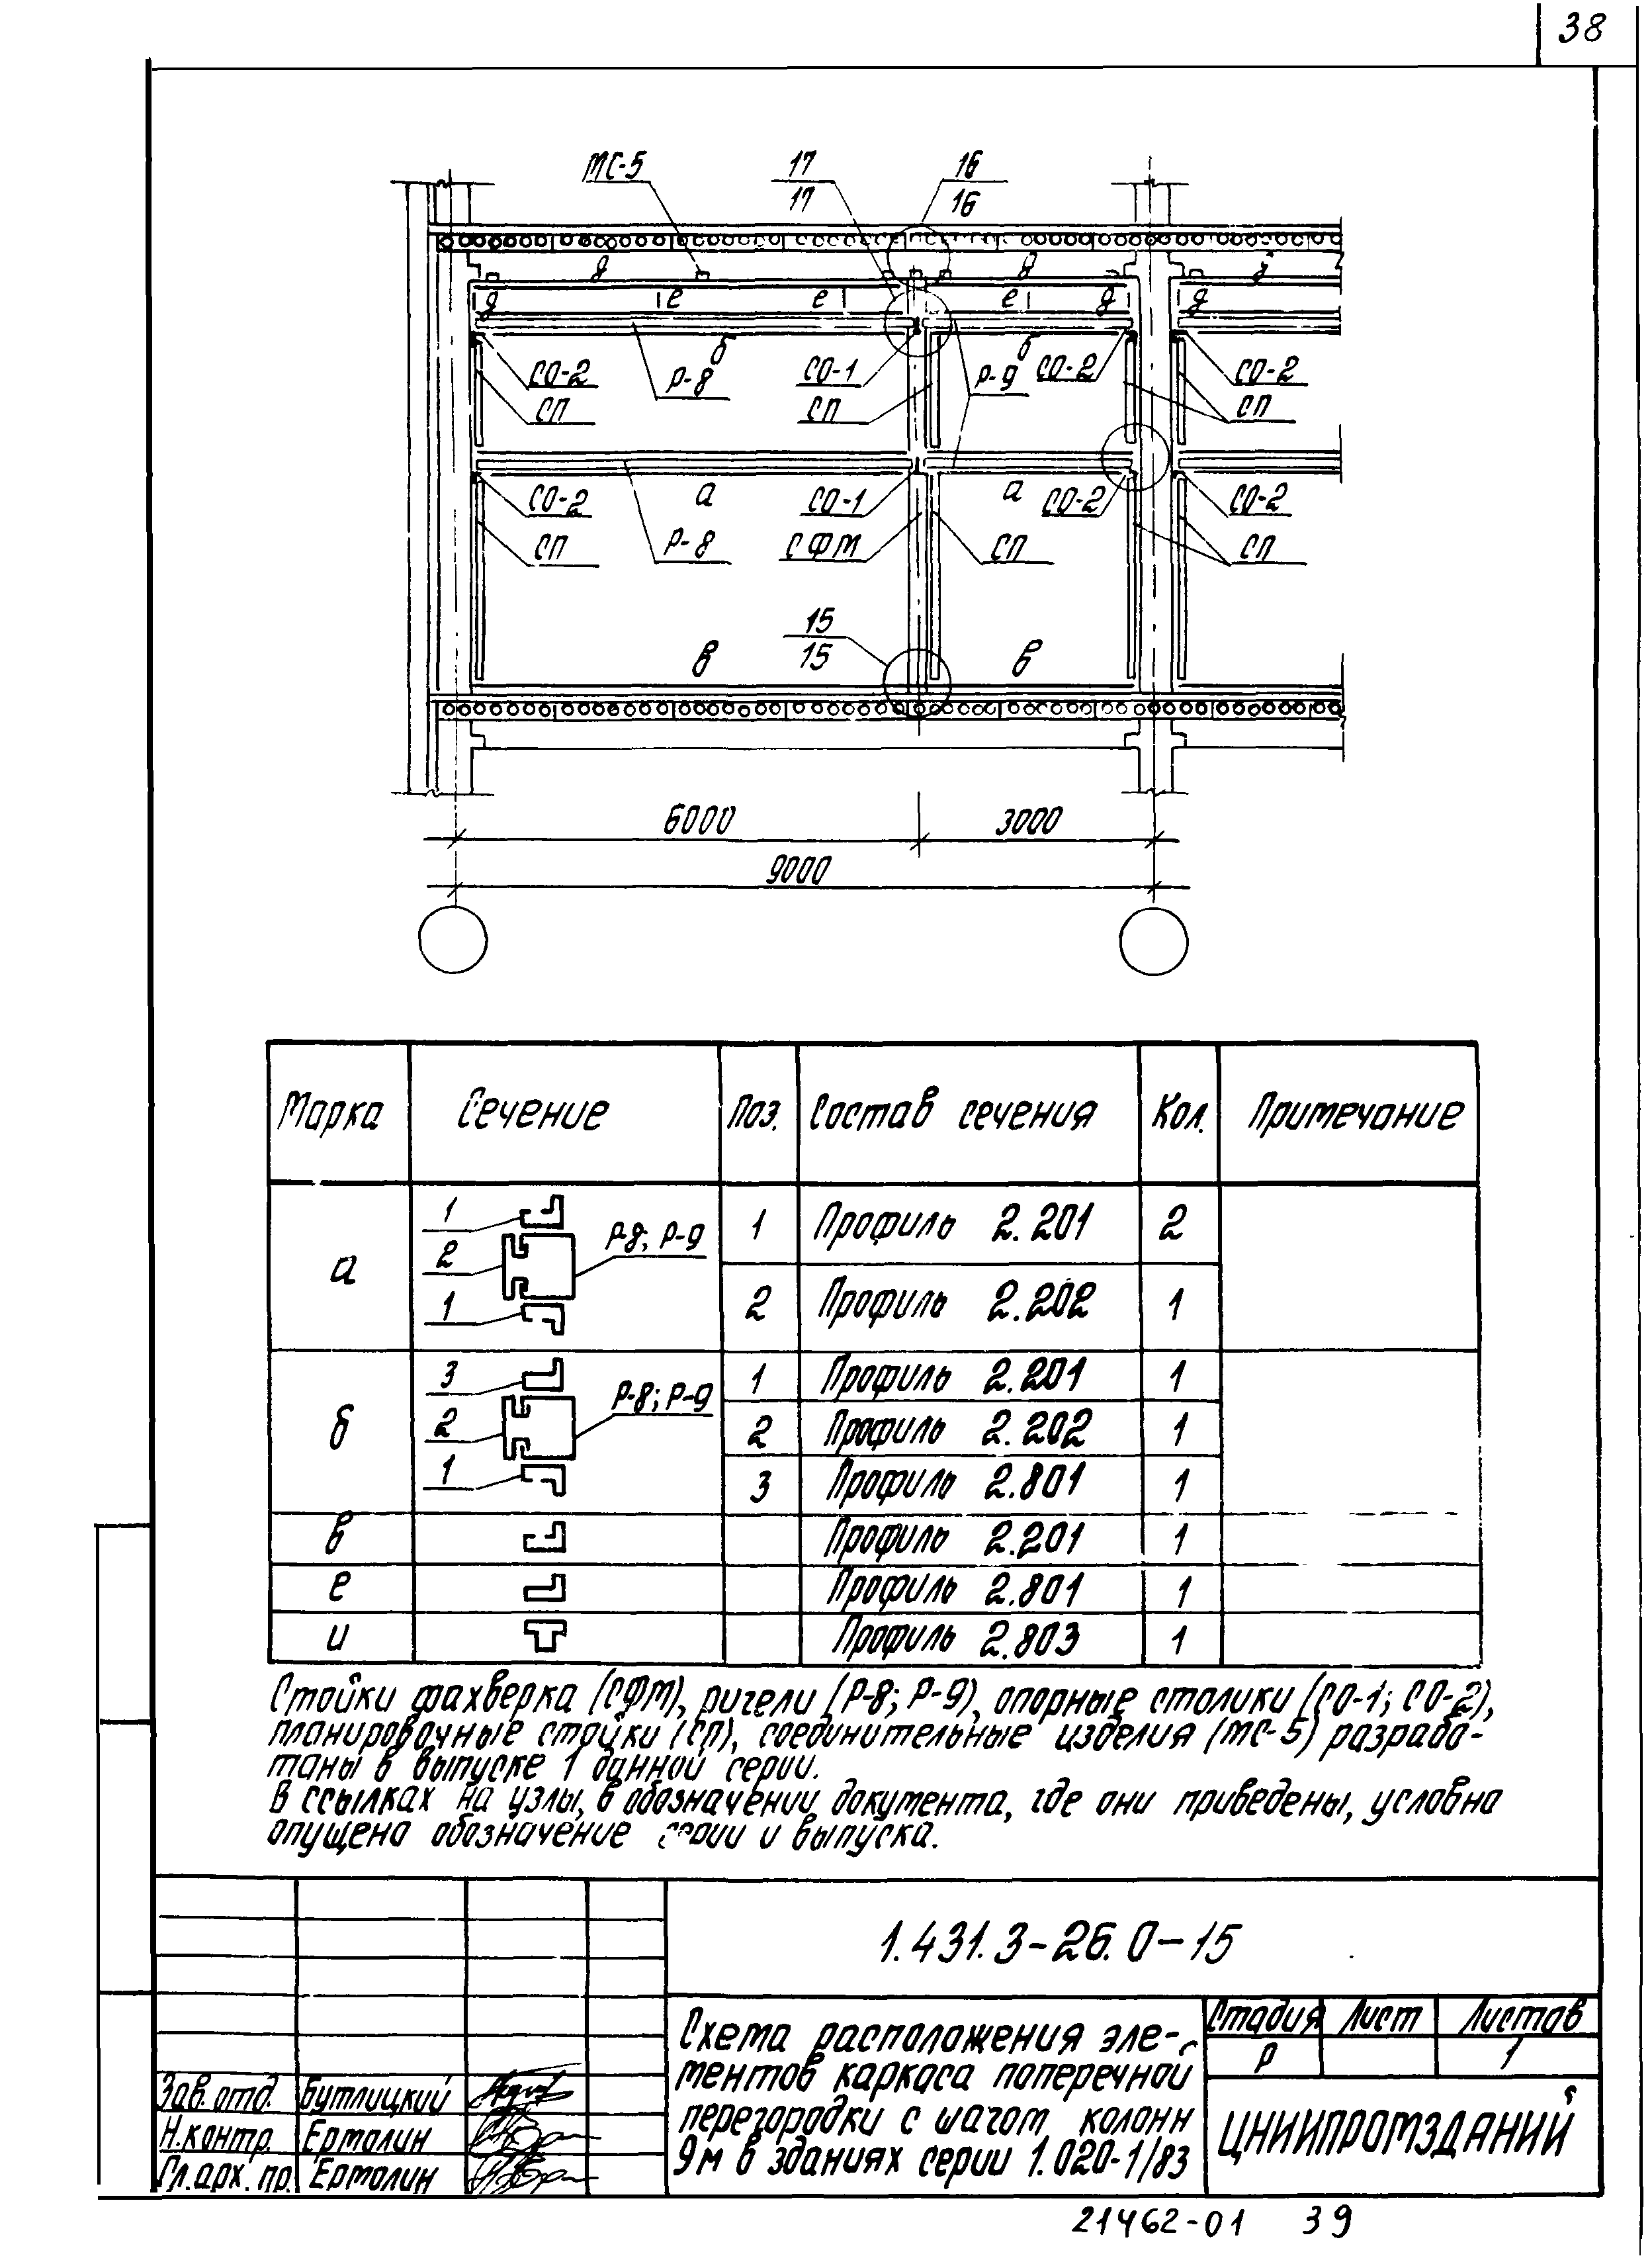 38
МС-5
17
17
16
16
д
д
д
е
е
е
д
д
б
б
СО-2
Р-8
СО-1
Р-9
СО-2
СО-2
СП
СП
СП
а
а
СО-2
СО-1
СО-2
СО-2
СП
Р-8
СФМ
СП
СП
15
15
в
в
6000
3000
9000
Марка Сечение Поз. Состав сечения Кол. Примечание
а 1 2 1 Р-8; Р-9 1 Профиль 2.201 2
2 Профиль 2.202 1
б 3 2 1 Р-8; Р-9 1 Профиль 2.201 1
2 Профиль 2.202 1
3 Профиль 2.801 1
в Профиль 2.201 1
е Профиль 2.801 1
и Профиль 2.803 1
Стойки фахверка (СФМ), ригели (Р-8; Р-9), опорные столики (СО-1; СО-2),
планировочные стойки (СП), соединительные изделия (МС-5) разрабо-
таны в выпуске 1 данной серии.
В ссылках на узлы, в обозначении документа, где они приведены, условно
опущено обозначение серии и выпуска.
1.431.3-26.0-15
Схема расположения эле-
ментов каркаса поперечной
перегородки с шагом колонн
9м в зданиях серии 1.020-1/83
Стадия Лист Листов
Р 1
ЦНИИПРОМЗДАНИЙ
Зав. отд. Бутлицкий
Н.контр. Ермолин
Гл.арх. пр. Ермолин
21462-01 39